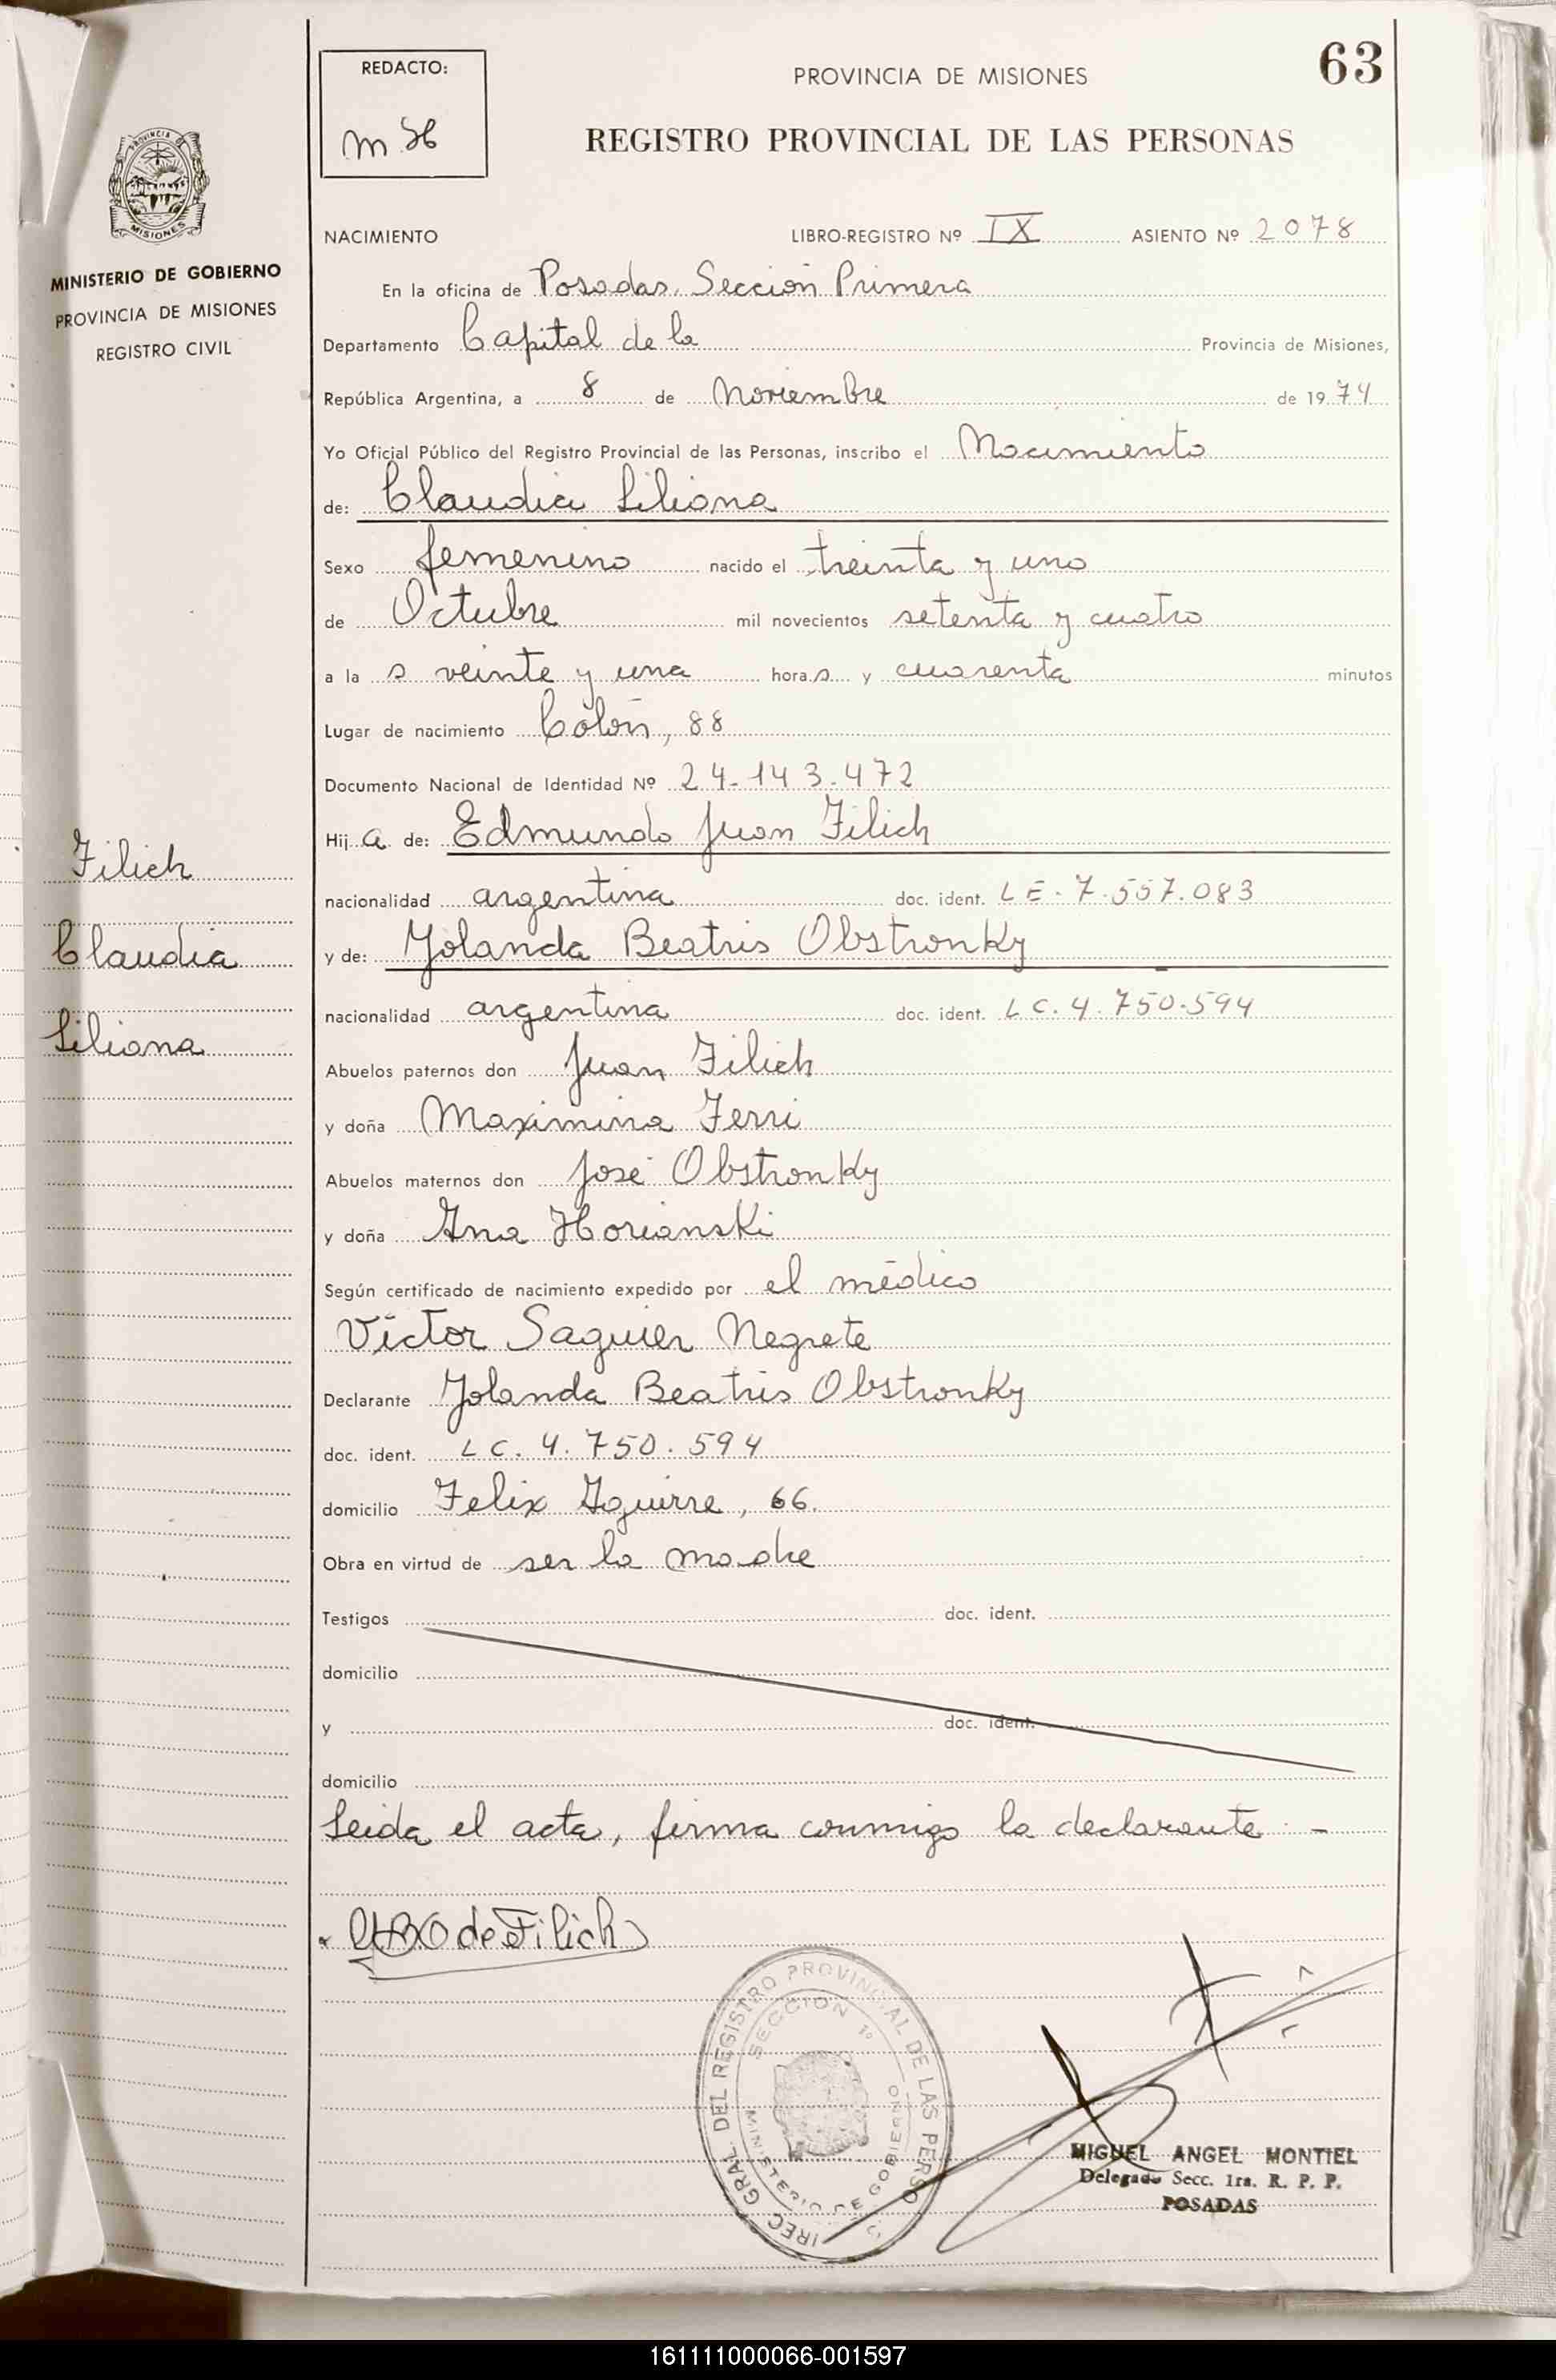 63
REDACTO:
PROVINCIA DE MISIONES
REGISTRO PROVINCIAL DE LAS PERSONAS
PROVINCIA DE
MISIONES
MINISTERIO DE GOBIERNO
PROVINCIA DE MISIONES
REGISTRO CIVIL
NACIMIENTO LIBRO-REGISTRO Nº IX ASIENTO Nº 2078
En la oficina de Posadas. Sección Primera
Departamento Capital de la Provincia de Misiones,
República Argentina, a 8 de Noviembre de 1974
Yo Oficial Público del Registro Provincial de las Personas, inscribo el Nacimiento
de: Claudia Liliana
Sexo femenino nacido el treinta y uno
de Octubre mil novecientos setenta y cuatro
a la s veinte y una hora s y cuarenta minutos
Lugar de nacimiento Colón, 88
Documento Nacional de Identidad Nº 24-143.472
Hij a de: Edmundo Juan Filich
nacionalidad argentina doc. ident. LE-7.557.083
y de: Yolanda Beatris Obstronky
nacionalidad argentina doc. ident. LC.4.750.594
Abuelos paternos don Juan Filich
y doña Maximina Ferri
Abuelos maternos don José Obstronky
y doña Ana Horianski
Según certificado de nacimiento expedido por el médico
Víctor Saguier Negrete
Declarante Yolanda Beatris Obstronky
doc. ident. LC.4.750.594
domicilio Felix Aguirre, 66.
Obra en virtud de ser la madre
Testigos doc. ident.
domicilio
y doc. ident.
domicilio
Leida el acta, firma conmigo la declarante.-
Filich
Claudia
Liliana
YBO de Filich
DIREC. GRAL. DEL REGISTRO PROVINCIAL DE LAS PERSO
SECCION 1º
MINISTERIO DE GOBIERNO
MIGUEL ANGEL MONTIEL
Delegado Secc. 1ra. R. P. P.
POSADAS
161111000066-001597